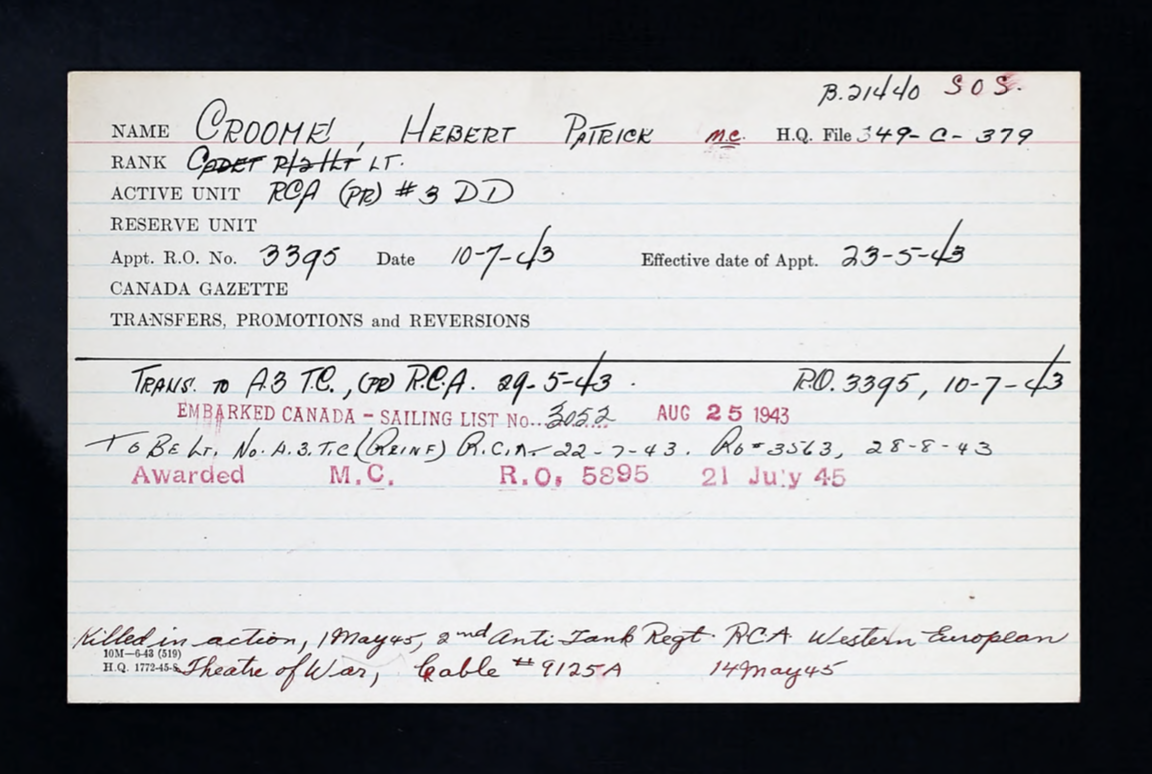 B.21440 SOS.
NAME CROOME, HEBERT PATRICK M.C. H.Q. File 349-C-379
RANK CADET P/2/LT LT.
ACTIVE UNIT RCA (PR) #3 DD
RESERVE UNIT
Appt. R.O. No. 3395 Date 10-7-43 Effective date of Appt. 23-5-43
CANADA GAZETTE
TRANSFERS, PROMOTIONS and REVERSIONS
TRANS. TO A3 T.C., (PR) R.C.A. 29-5-43. R.O. 3395, 10-7-43
EMBARKED CANADA - SAILING LIST No... 3052 AUG 25 1943
TO BE LT. No. A.3. T.C (REINF) R.C.A - 22-7-43. RO #3563, 28-8-43
Awarded M.C. R.O. 5895 21 July 45
Killed in action, 1 May 45, 2nd Anti-Tank Regt. RCA Western European
10M-6-43 (519)
H.Q. 1772-45-8 Theatre of War, Cable #9125A 14 May 45